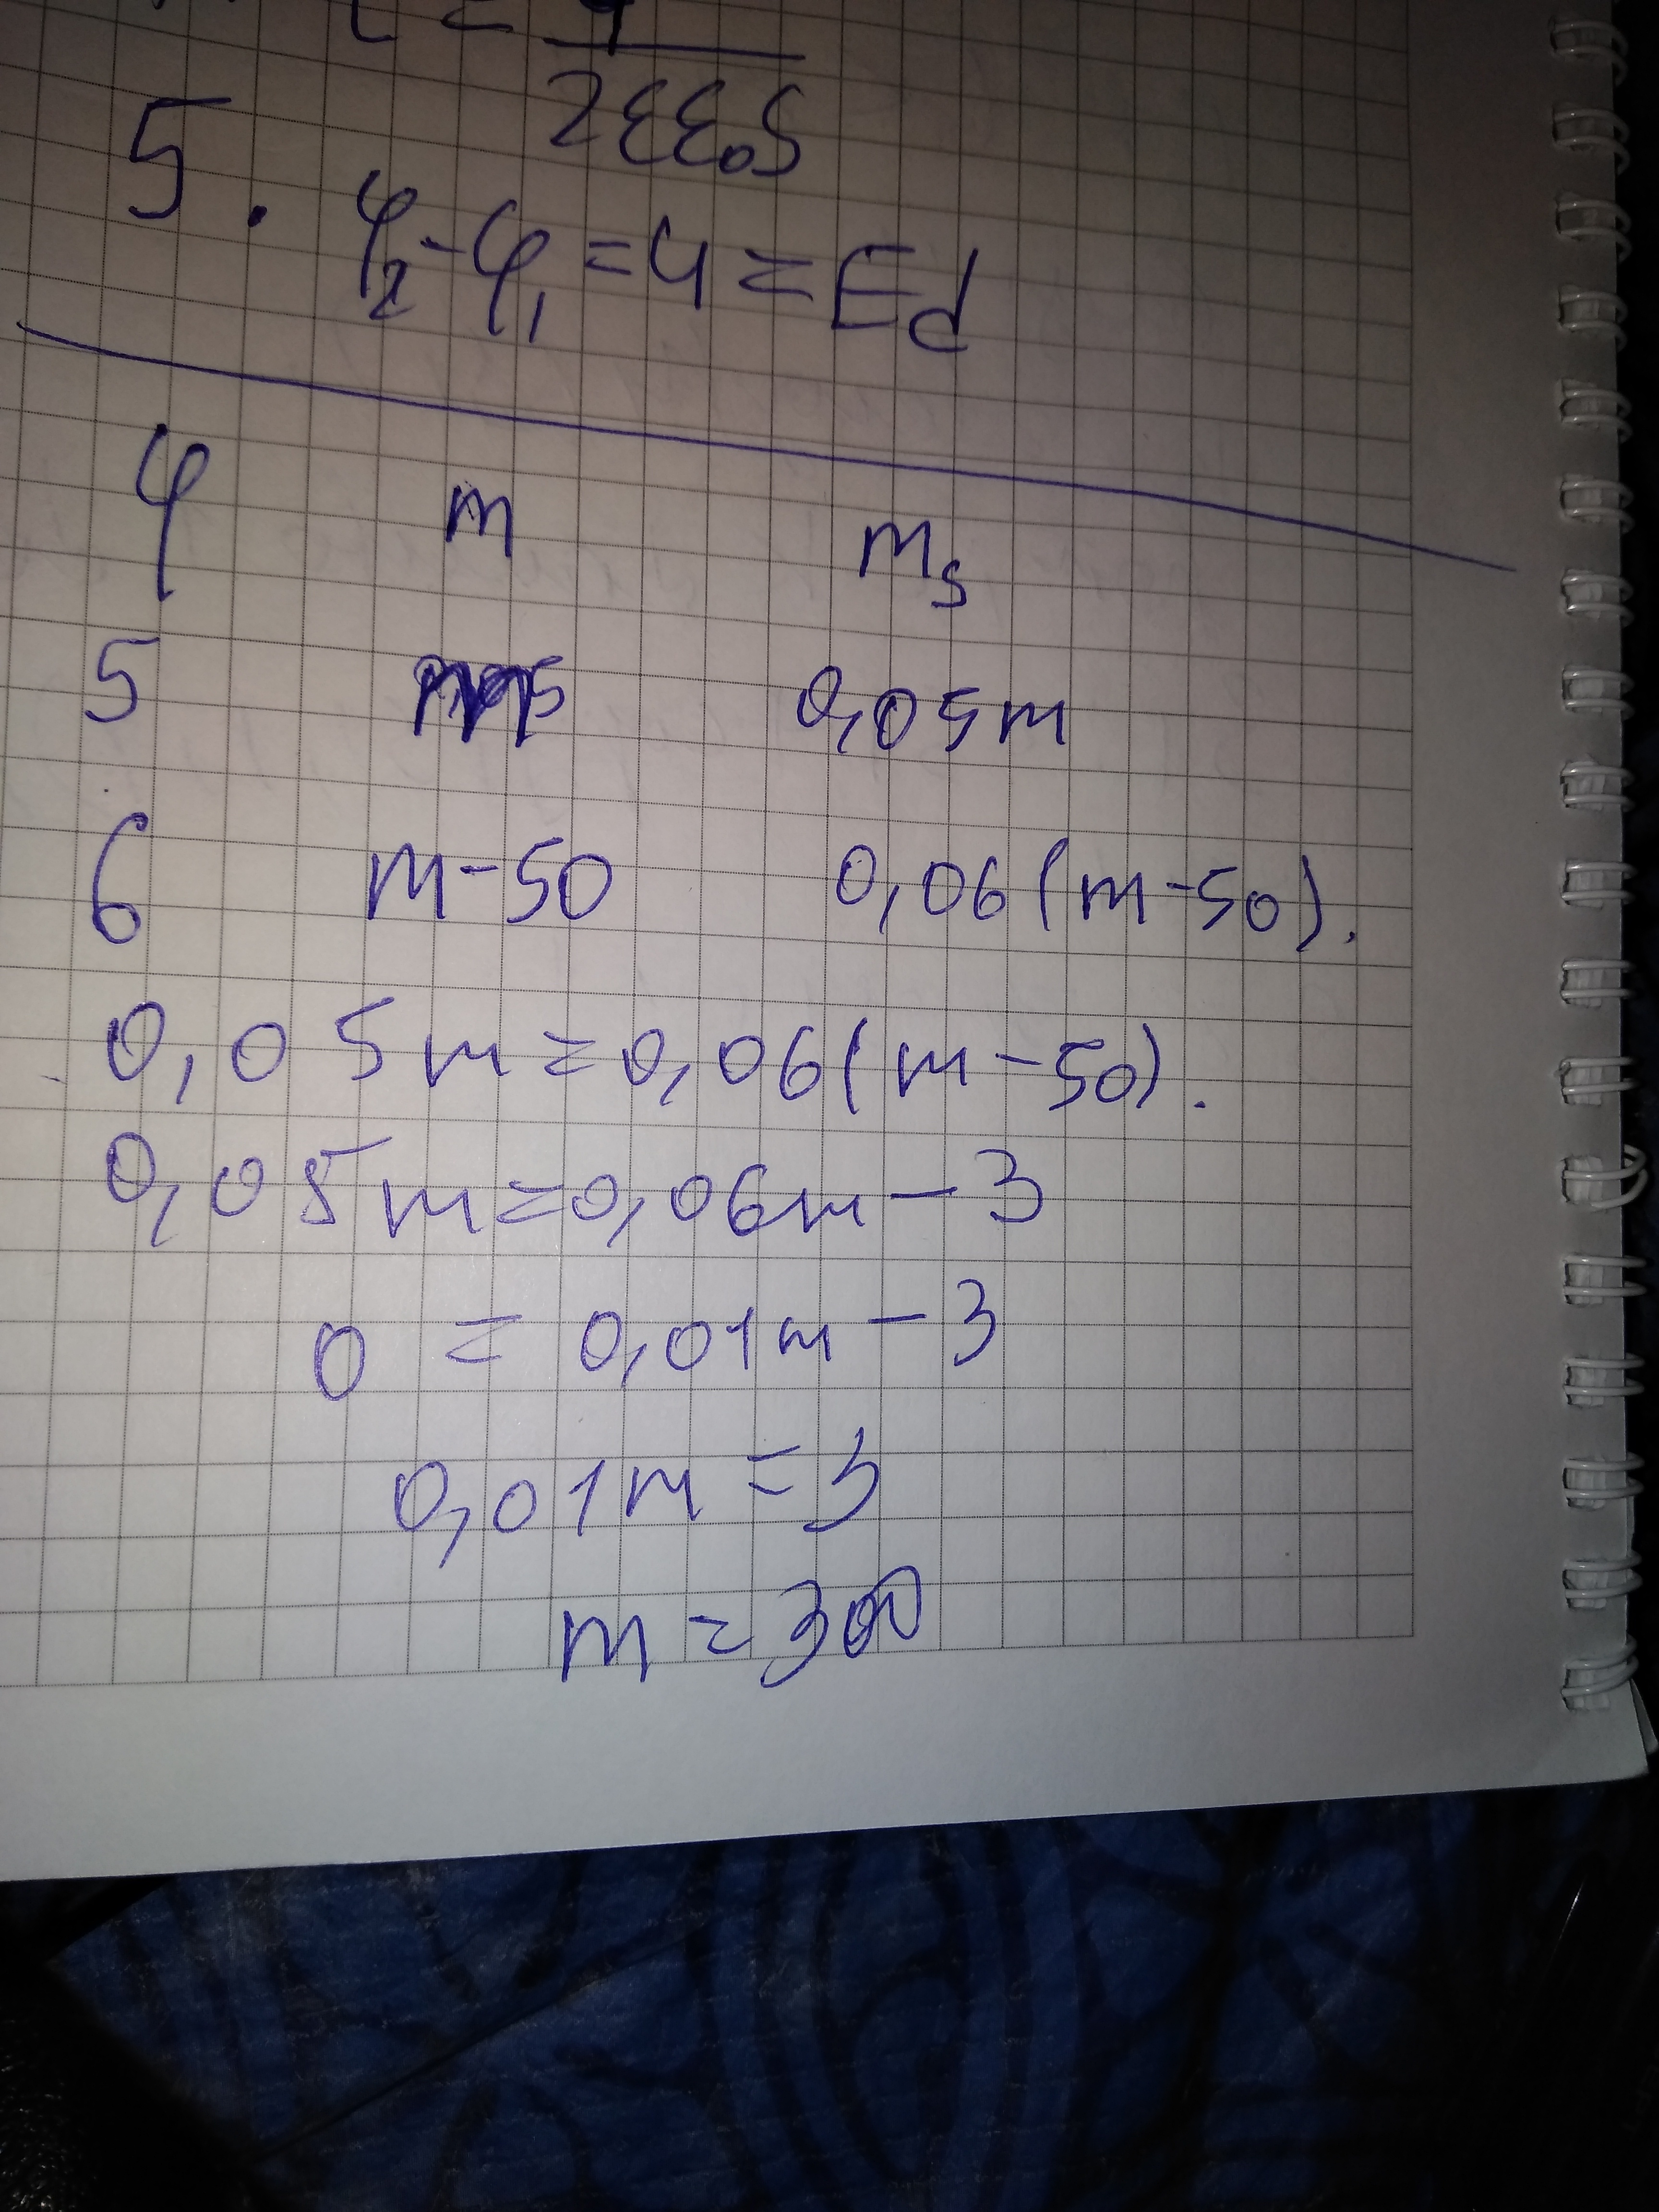 = 2εε₀S
5. φ₂-φ₁=U=Ed
φ m mₛ
5 0,05m
6 m-50 0,06(m-50).
0,05m=0,06(m-50).
0,05m=0,06m-3
0 = 0,01m-3
0,01m=3
m=300